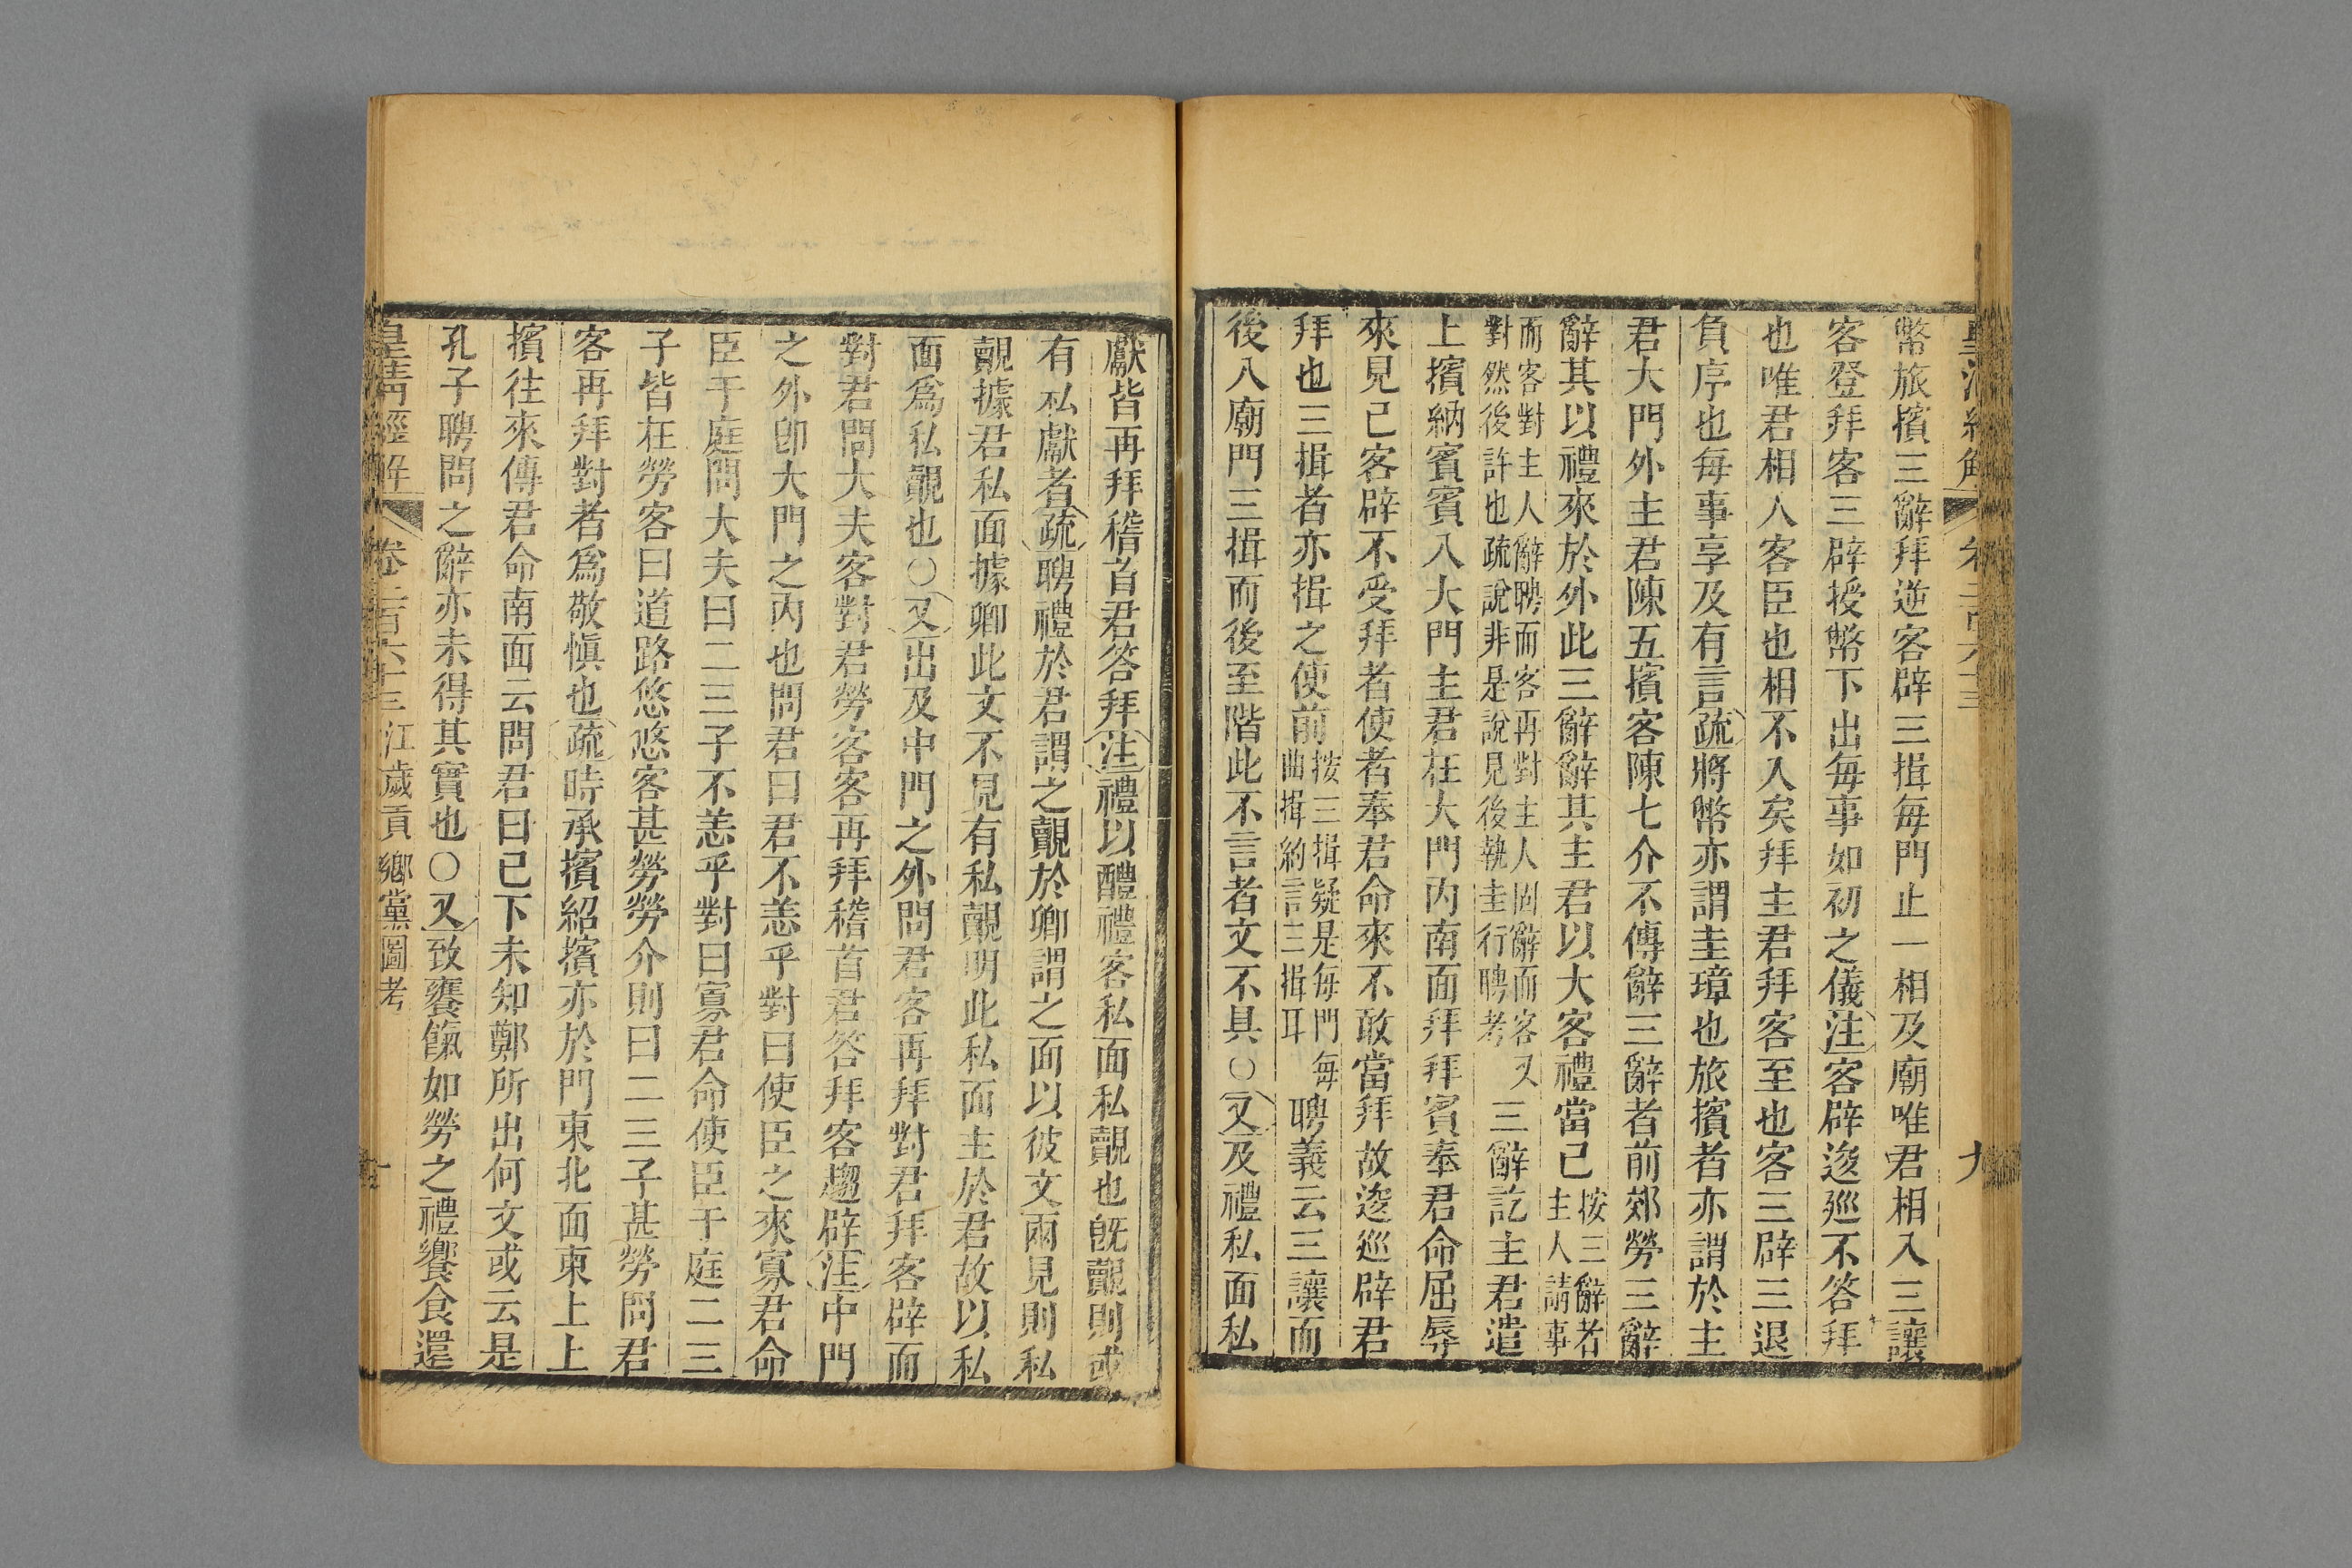 幣旅擯三辭拜逆客辟三揖每門止一相及廟唯君相入三讓
客登拜客三辟授幣下出每事如初之儀注客辟逡巡不答拜
也唯君相入客臣也相不入矣拜主君拜客至也客三辟三退
負序也每事享及有言疏將幣亦謂圭璋也旅擯者亦謂於主
君大門外主君陳五擯客陳七介不傳辭三辭者前郊勞三辭
辭其以禮來於外此三辭辭其主君以大客禮當己按三辭者
主人請事
而客對主人辭聘而客再對主人固辭而客又
對然後許也疏說非是說見後執圭行聘考
三辭訖主君遣
上擯納賓賓入大門主君在大門內南面拜拜賓奉君命屈辱
來見己客辟不受拜者使者奉君命來不敢當拜故逡巡辟君
拜也三揖者亦揖之使前按三揖疑是每門每
曲揖約言三揖耳
聘義云三讓而
後入廟門三揖而後至階此不言者文不具○又及禮私面私
獻皆再拜稽首君答拜注禮以醴禮客私面私覿也旣覿則或
有私獻者疏聘禮於君謂之覿於卿謂之面以彼文兩見則私
覿據君私面據卿此文不見有私覿明此私面主於君故以私
面爲私覿也○又出及中門之外問君客再拜對君拜客辟而
對君問大夫客對君勞客客再拜稽首君答拜客趨辟注中門
之外卽大門之內也問君曰君不恙乎對曰使臣之來寡君命
臣于庭問大夫曰二三子不恙乎對曰寡君命使臣于庭二三
子皆在勞客曰道路悠悠客甚勞勞介則曰二三子甚勞問君
客再拜對者爲敬愼也疏時承擯紹擯亦於門東北面東上上
擯往來傳君命南面云問君曰已下未知鄭所出何文或云是
孔子聘問之辭亦未得其實也○又致饔餼如勞之禮饗食還
皇淸經解 卷二百六十三 江歲貢鄉黨圖考